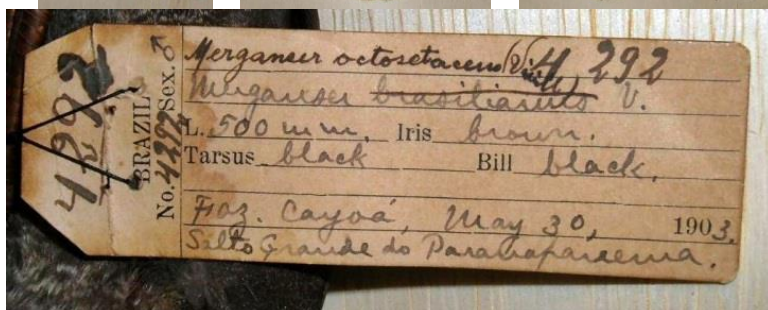 4292
BRAZIL
No. 4292 Sex. ♂
Merganser octosetaceus (Vieill) 4292
Merganser brasilianus V.
L. 500 mm. Iris brown.
Tarsus black Bill black.
Faz. Cayoá, May 30, 1903.
Salto Grande do Paranapanema.